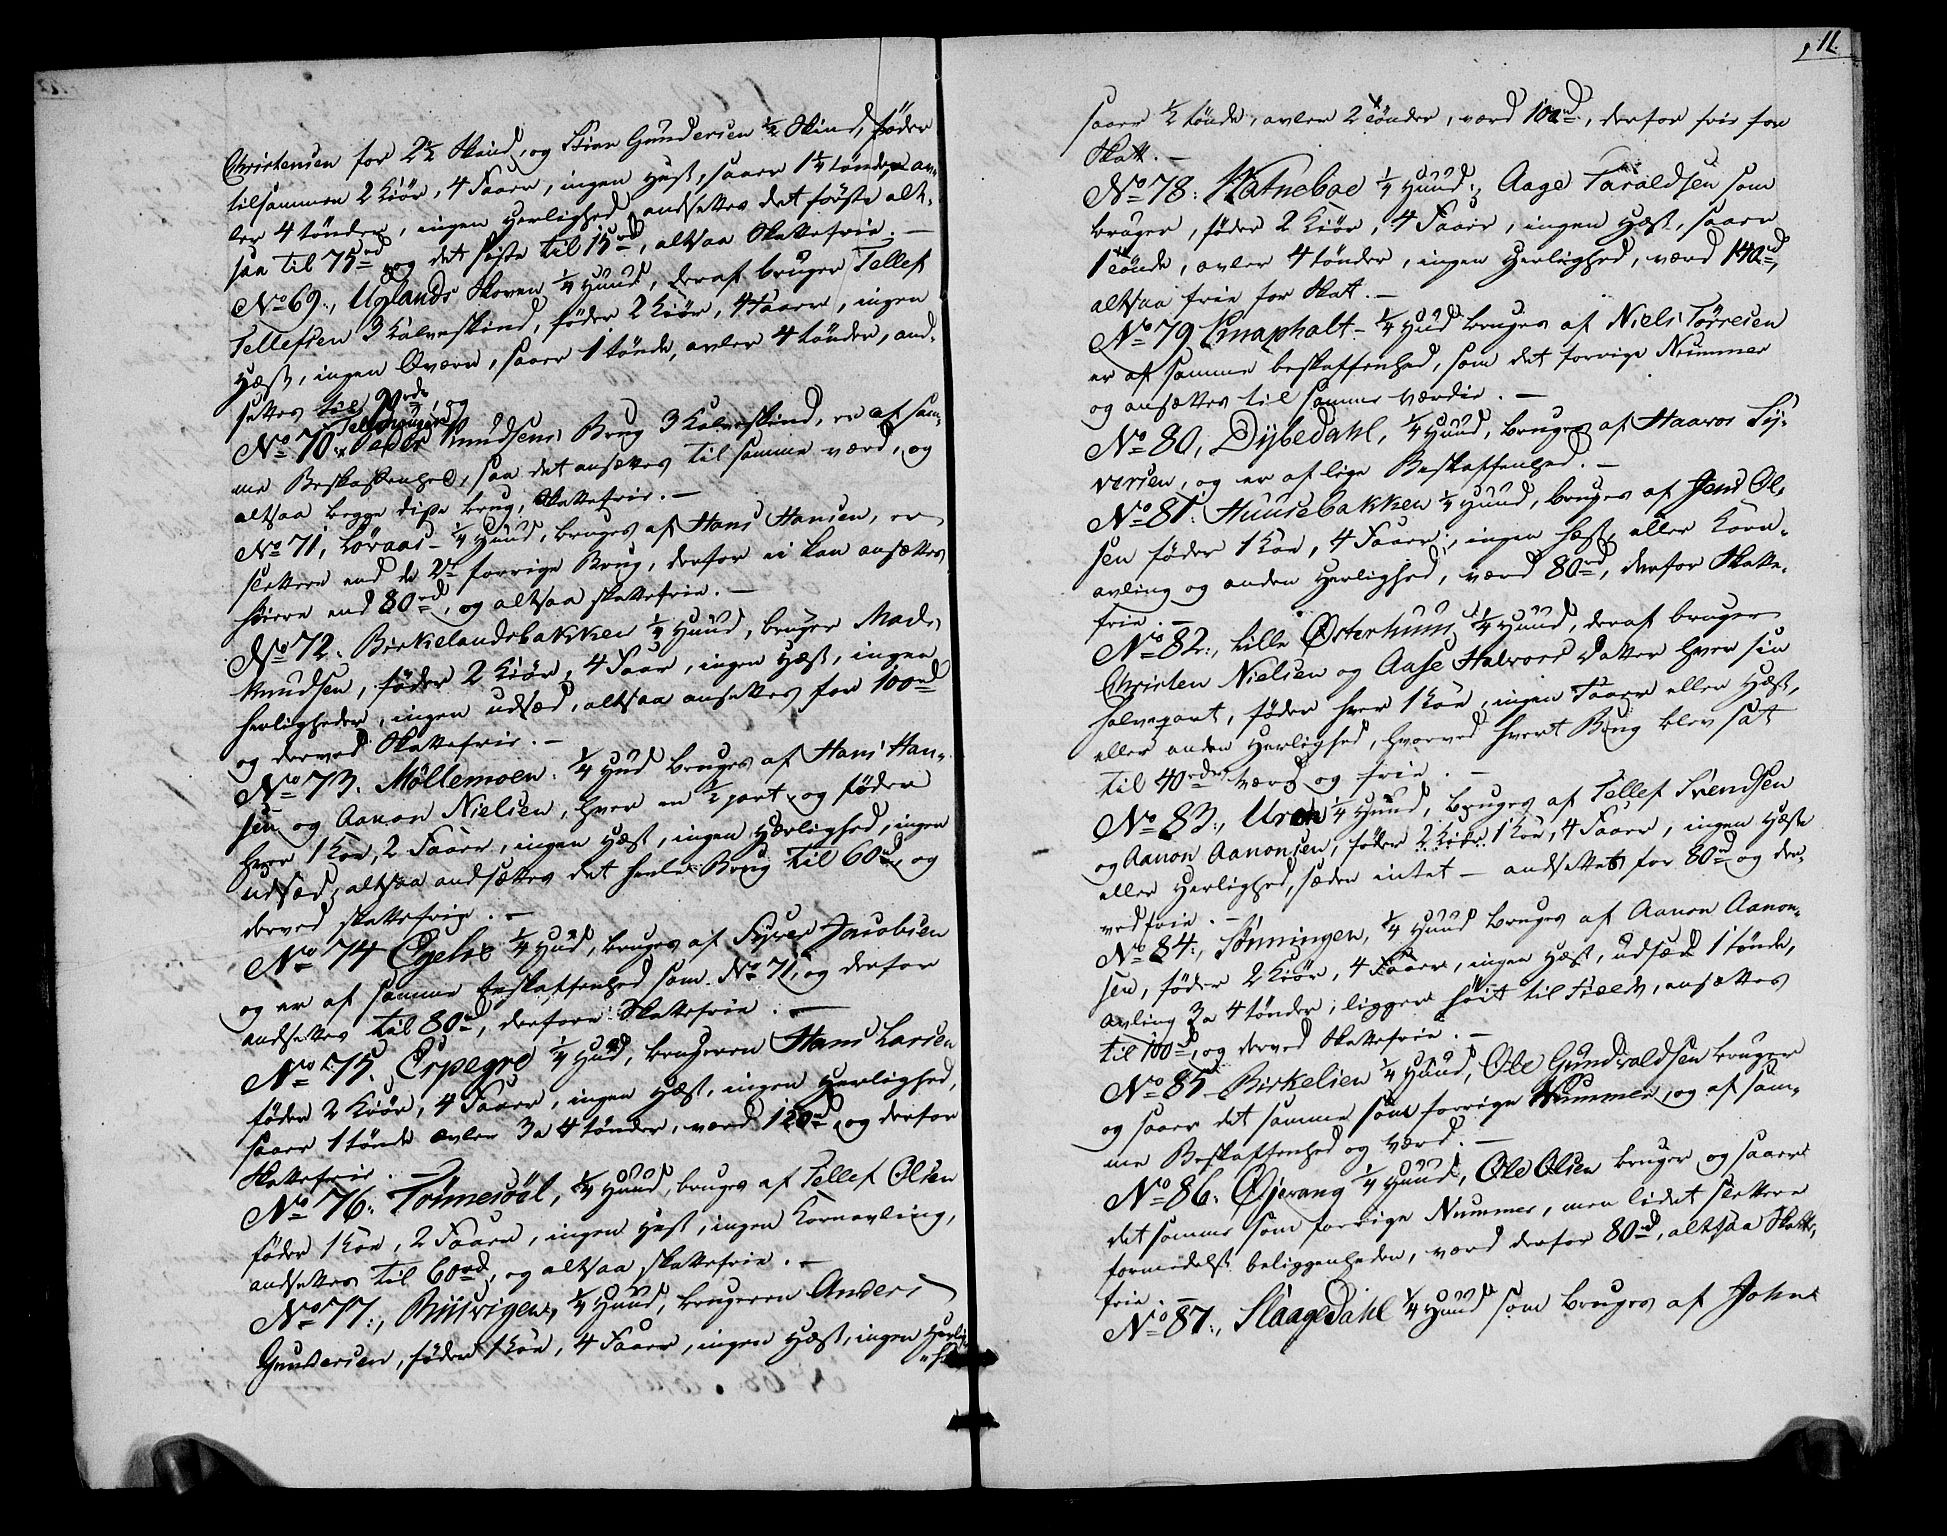 Christensen for 2½ Skind, og Stian Gundersen ½ Skind, føder
tilsammen 2 Kiör, 4 Faarr, ingen Hest, saaer 1¼ tønde av-
ler 4 tönder, ingen Herlighed, andsettes det første alt-
saa til 75rd og det siste til 15rd, altsaa Skattefrie. -
No 69., Uglands Skoven ¼ Huud, deraf bruger Tellef
Tellefsen 3 Kalveskind, føder 2 Kiör, 4 Faarr, ingen
Hæst, ingen Qværn, saaer 1 tönde, avler 4 tönder, and-
settes til 90rd, og
No 70. Peder Knudsens Brug 3 Kalveskind, er af sam-
me Beskaffenhed, saa det ansættes til samme værd, og
altsaa begge disse brug, Skattefrie. -
No 71, Löraas - ¼ Huud, bruges af Hans Hansen, er
slettere end de 2de forrige Brug, derfor ei kan ansættes
höiere end 80rd, og altsaa skattefrie. -
No 72. Birkelandsbakken ¼ Huud, bruger Mads
Knudsen, føder 2 Kiör, 4 Faar, ingen Hæst, ingen
herligheder, ingen udsæd, altsaa ansettes for 100rd
og derved Skattefrie. -
No 73. Möllemoen. ¼ Hud bruges af Hans Han-
sen og Aanon Nielsen, hver en ½ part, og føder
hver 1 Koe, 2 Faarr, ingen Hæst, ingen Herlighed, ingen
udsæd, altsaa andsættes det heele Brug til 60rd, og
derved skattefrie. -
No 74 ¼ Hud, bruges af Jacobsen
og er af samme beskaffenhed som No 71, og derfor
andsettes til 80rd, derfore Skattefrie. -
No 75. Espegre ¼ Hud, brugeren Hans Larsen
føder 2 Kiör, 4 Faarr, ingen Hæst, ingen Herlighed,
saaer 1 tönde avler 3 a 4 tönder, værd 120rd og derfor
Skattefrie. -
No 76. Tönnesöel, ¼ Huud, bruges af Tellef Olsen
føder 1 Koe, 2 Faarr, ingen Hest, ingen Kornavling,
andsettes til 60rd, og altsaa skattefrie. -
No 77., ¼ Huud, brugeren Anders
Gundersen, føder 1 Koe, 4 Faarr, ingen Hæst, ingen Herlig-
11.
saaer ½ tönde, avler 2 tönder, værd 100rd, derfor frie for
Skatt. -
No 78. Katneboe ¼ Huud., Aage Taraldsen som
bruger, føder 2 Kiör, 4 Faarr, ingen Hæst, saaer
1 tönde, avler 4 tönder, ingen Herlighed, værd 140rd,
altsaa frie for Skat. -
No 79 Knaphalt - ¼ Hud bruges af Niels Törresen
er af samme beskaffenhed, som det forrige Nummer
og ansættes til samme Værdie. -
No 80, Dybedahl, ¼ Huud, bruges af Haavor Sy-
versen, og er af lige Beskaffenhed. -
No 81. Huusebakken ¼ Huud, bruges af Jens Ol-
sen føder 1 Koe, 4 Faarr, ingen Hæst, eller Korn-
avling og anden Herlighed, værd 80rd, derfor Skatte-
frie. -
No 82., Lille Østerhuus ¼ Huud, deraf bruger
Christen Nielsen og Aase Halvors Datter hver sin
halvepart, føder hver 1 Koe, ingen Faarr eller Hæst,
eller anden Herlighed, hvorved hvert Brug blev sat
til 40rdrs Værd og frie. -
No 83., Uren ¼ Huud, bruges af Tellef Svendsen
og Aanon Aanonsen, føder 2 Kiör 1 Koe, 4 Faarr, ingen Hæst
eller Herlighed, sæden intet - andsettes for 80rd og der-
ved frie. -
No 84., Tønningen, ¼ Huud bruges af Aanon Aanon-
sen, føder 2 Kiör, 4 Faarr, ingen Hæst, udsæd 1 tönde,
avling 3 a 4 tönder, ligger höit til Fields, ansættes
til 100rd, og derved Skattefrie. -
No 85 Birkelien ¼ Huud, Ole Gundvaldsen bruger
og saaer det samme som forrige Nummer, og af sam-
me Beskaffenhed og værd. -
No 86. Øjevang ¼ Huud, Ole Olsen bruger og saaer
det samme som forrige Nummer, men lidet slettere
formedelst beliggenheden, værd derfor 80rd, altsaa Skatt-
frie. -
No 87., Slaagedahl ¼ Huud som bruges af John